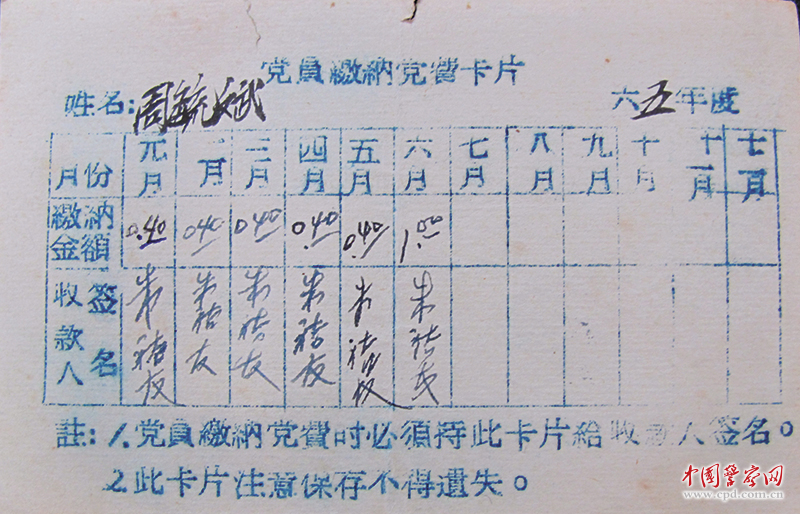 党員繳納党費卡片
姓名:周毓斌 六五年度
月份 元月 二月 三月 四月 五月 六月 七月 八月 九月 十月 十一月 十二月
繳納金額 0.40 0.40 0.40 0.40 0.40 1.00
收款人簽名 朱 友 朱 友 朱 友 朱 友 朱 友 朱
註:1.党員繳納党費时必須持此卡片給收款人签名。
2.此卡片注意保存不得遺失。
中国警察网
www.cpd.com.cn